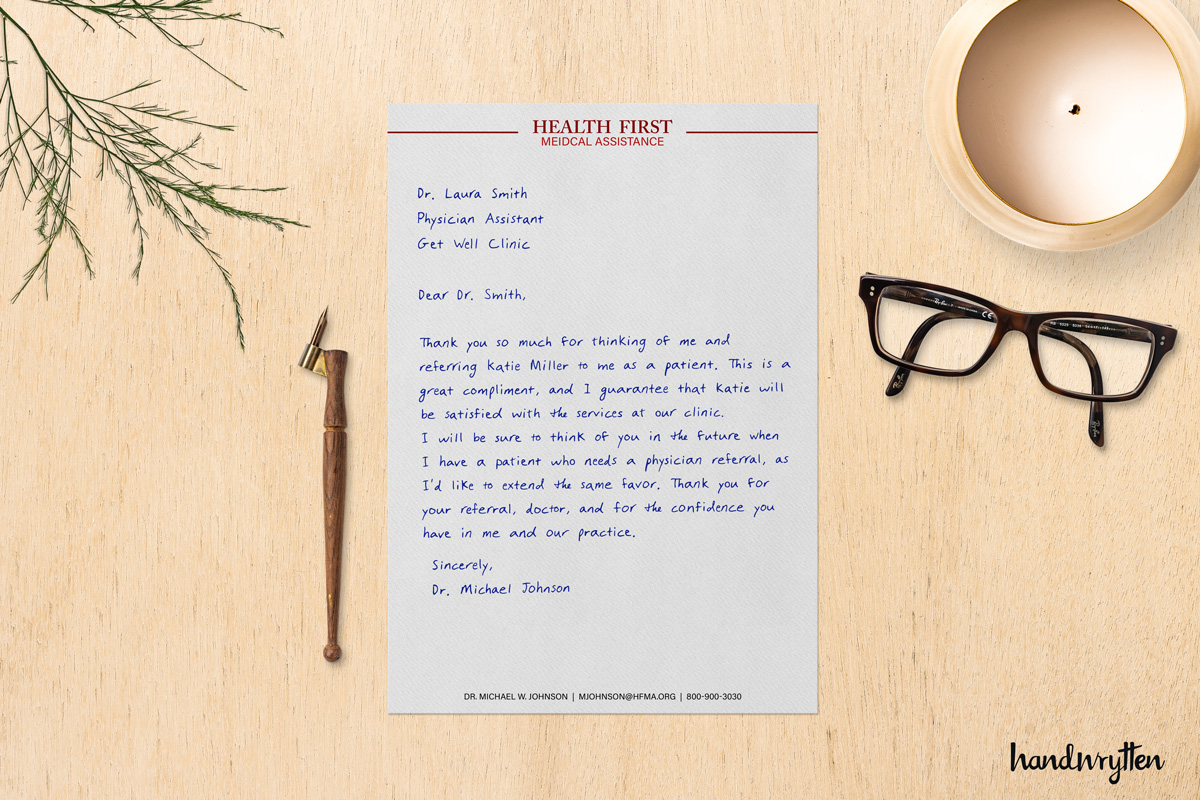 HEALTH FIRST
MEIDCAL ASSISTANCE
Dr. Laura Smith
Physician Assistant
Get Well Clinic
Dear Dr. Smith,
Thank you so much for thinking of me and
referring Katie Miller to me as a patient. This is a
great compliment, and I guarantee that Katie will
be satisfied with the services at our clinic.
I will be sure to think of you in the future when
I have a patient who needs a physician referral, as
I'd like to extend the same favor. Thank you for
your referral, doctor, and for the confidence you
have in me and our practice.
Sincerely,
Dr. Michael Johnson
DR. MICHAEL W. JOHNSON | MJOHNSON@HFMA.ORG | 800-900-3030
Ray-Ban
CE
handwrytten